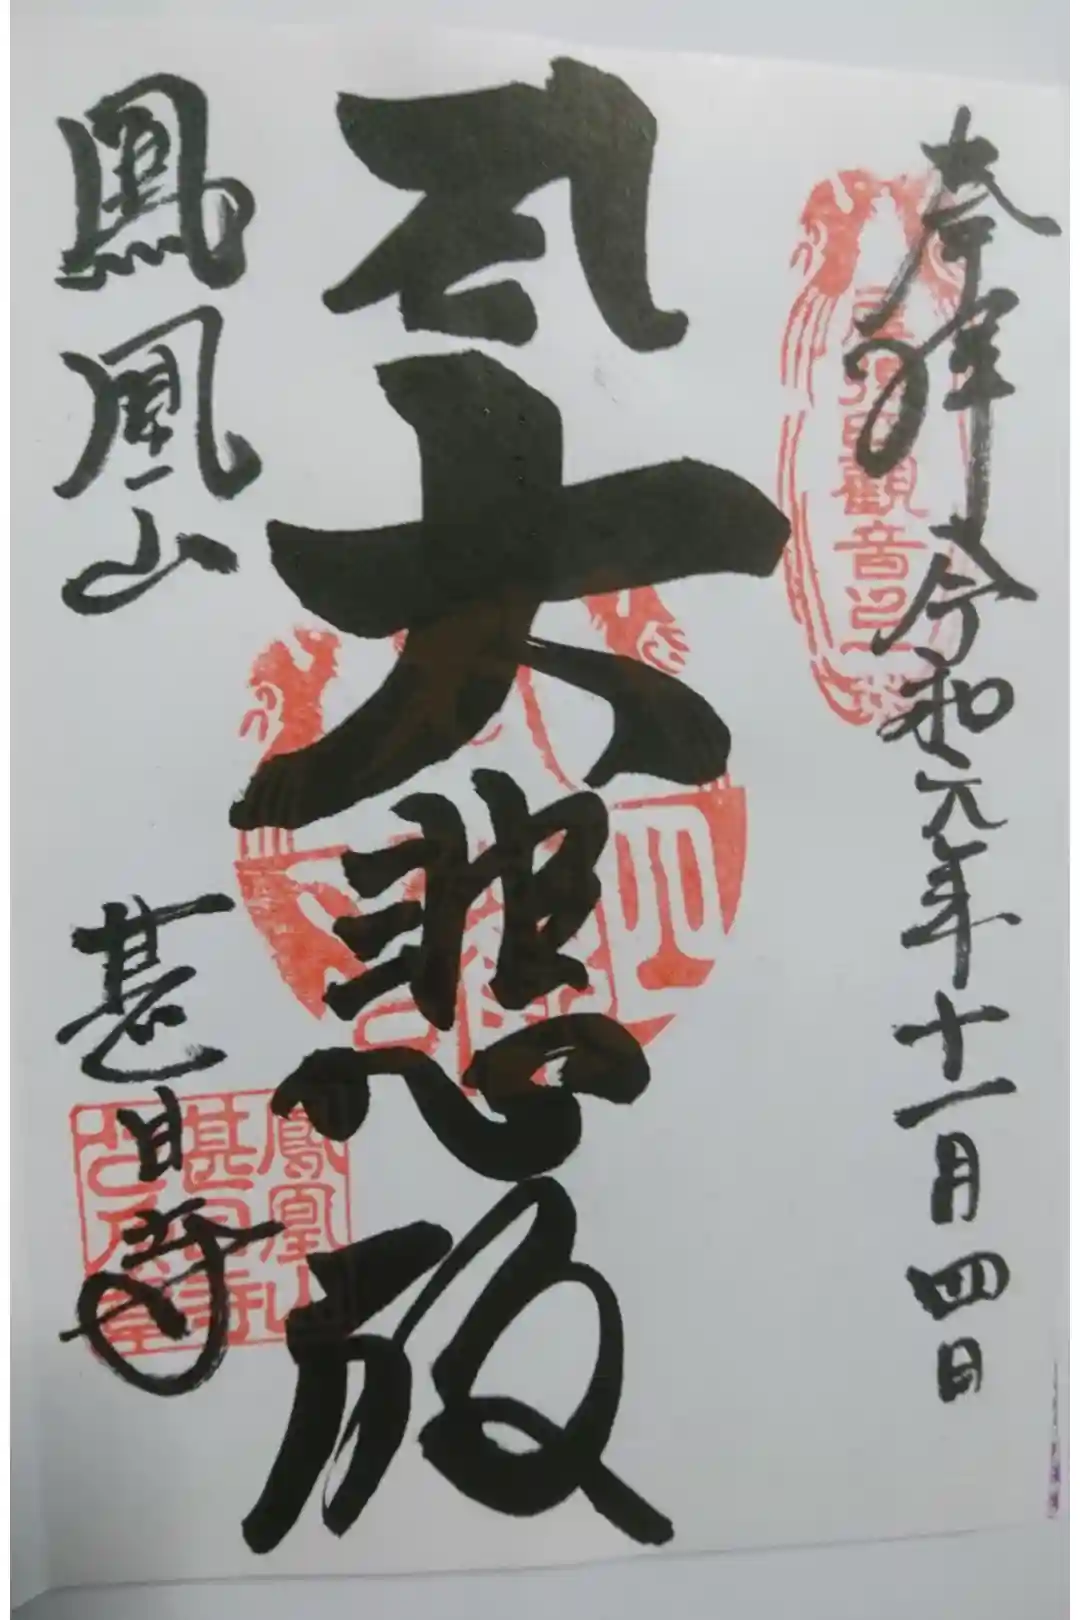 奉拝 令和元年十一月四日
尾張四觀音
大悲殿
鳳凰山 甚目寺
鳳凰山
甚目寺